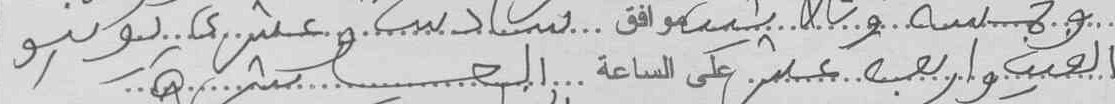 وخمسة وثلاثين موافق سادس وعشرين يونيو
الفين واربعة عشر على الساعة العاشرة